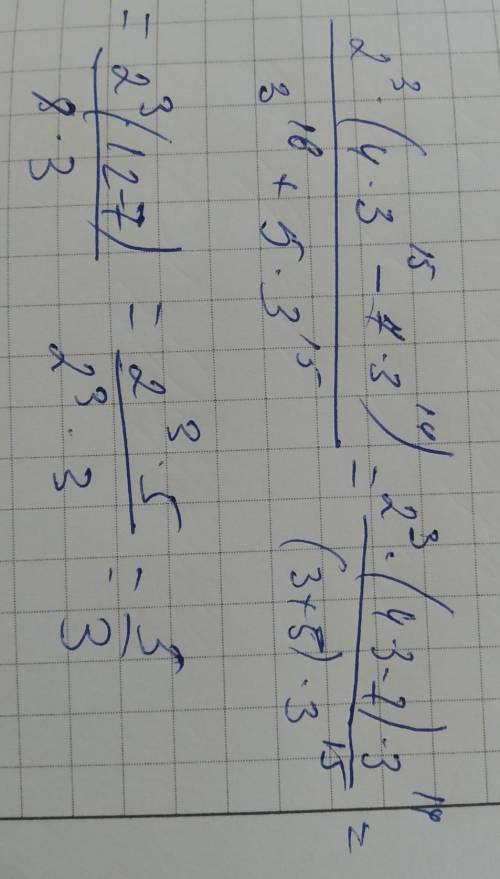 2³·(4·3¹⁵ - 7·3¹⁴) / 3¹⁶ + 5·3¹⁵ = 2³·(4·3-7)·3¹⁴ / (3+5)·3¹⁵ =
= 2³(12-7) / 8·3 = 2³·5 / 2³·3 = 5/3